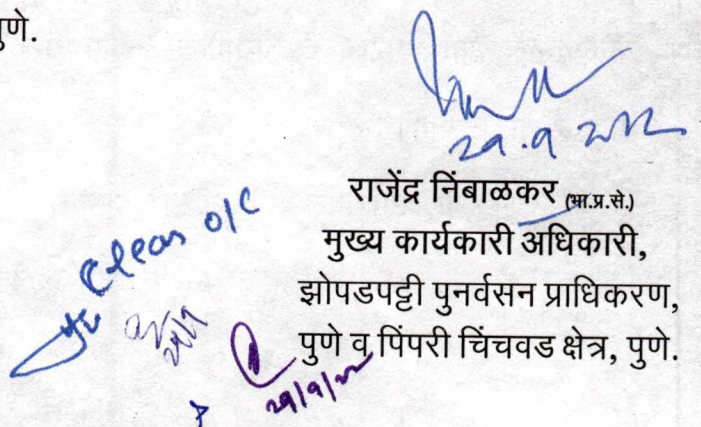 पुणे.
29.9.2022
राजेंद्र निंबाळकर (भा.प्र.से.)
मुख्य कार्यकारी अधिकारी,
झोपडपट्टी पुनर्वसन प्राधिकरण,
पुणे व पिंपरी चिंचवड क्षेत्र, पुणे.
Clean o/c